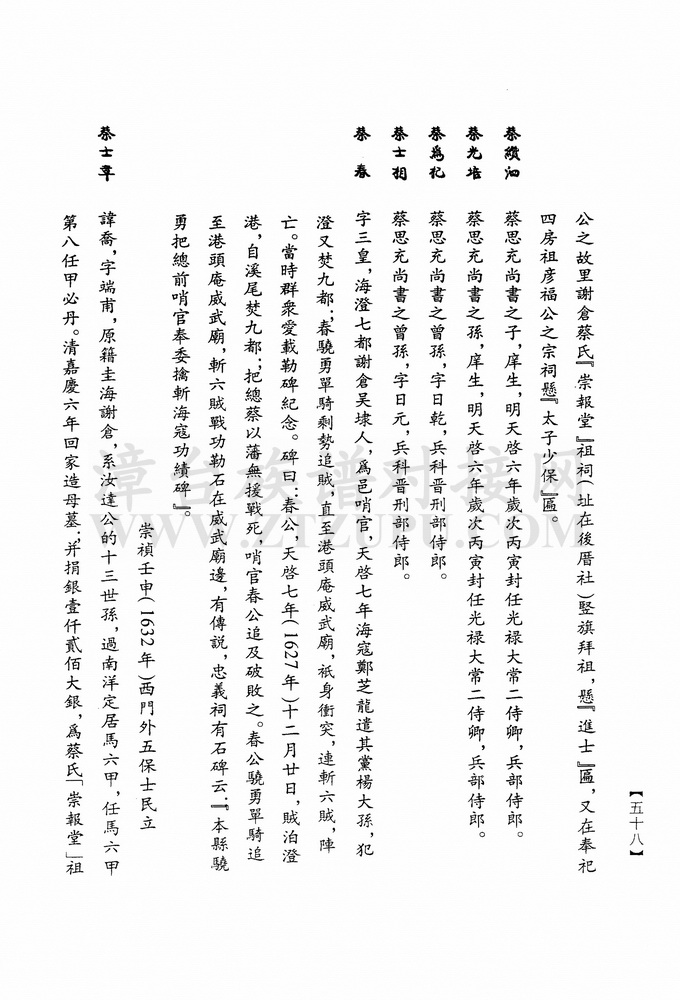 【五十八】
公之故里謝倉蔡氏『崇報堂』祖祠(址在後厝社)竪旗拜祖,懸『進士』匾,又在奉祀
四房祖彦福公之宗祠懸『太子少保』匾。
蔡纘泗 蔡思充尚書之子,庠生,明天啓六年歲次丙寅封任光禄大常二侍卿,兵部侍郎。
蔡光培 蔡思充尚書之孫,庠生,明天啓六年歲次丙寅封任光禄大常二侍卿,兵部侍郎。
蔡爲杞 蔡思充尚書之曾孫,字日乾,兵科晋刑部侍郎。
蔡士栩 蔡思充尚書之曾孫,字日元,兵科晋刑部侍郎。
蔡 春 字三皇,海澄七都謝倉吴埭人,爲邑哨官,天啓七年海寇鄭芝龍遣其黨楊大孫,犯
澄又焚九都;春驍勇單騎剩勢追賊,直至港頭庵威武廟,祇身衝突,連斬六賊,陣
亡。當時群衆愛載勒碑紀念。碑曰:春公,天啓七年(1627年)十二月廿日,賊泊澄
港,自溪尾焚九都;把總蔡以藩無援戰死,哨官春公追及破敗之。春公驍勇單騎追
至港頭庵威武廟,斬六賊戰功勒石在威武廟邊,有傳説,忠義祠有石碑云:『本縣驍
勇把總前哨官奉委擒斬海寇功績碑』。
崇禎壬申(1632年)西門外五保士民立
蔡士章 諱喬,字端甫,原籍圭海謝倉,系汝達公的十三世孫,過南洋定居馬六甲,任馬六甲
第八任甲必丹。清嘉慶六年回家造母墓;并捐銀壹仟貳佰大銀,爲蔡氏「崇報堂」祖
章台族譜對接网
WWW.ZTZUPU.COM